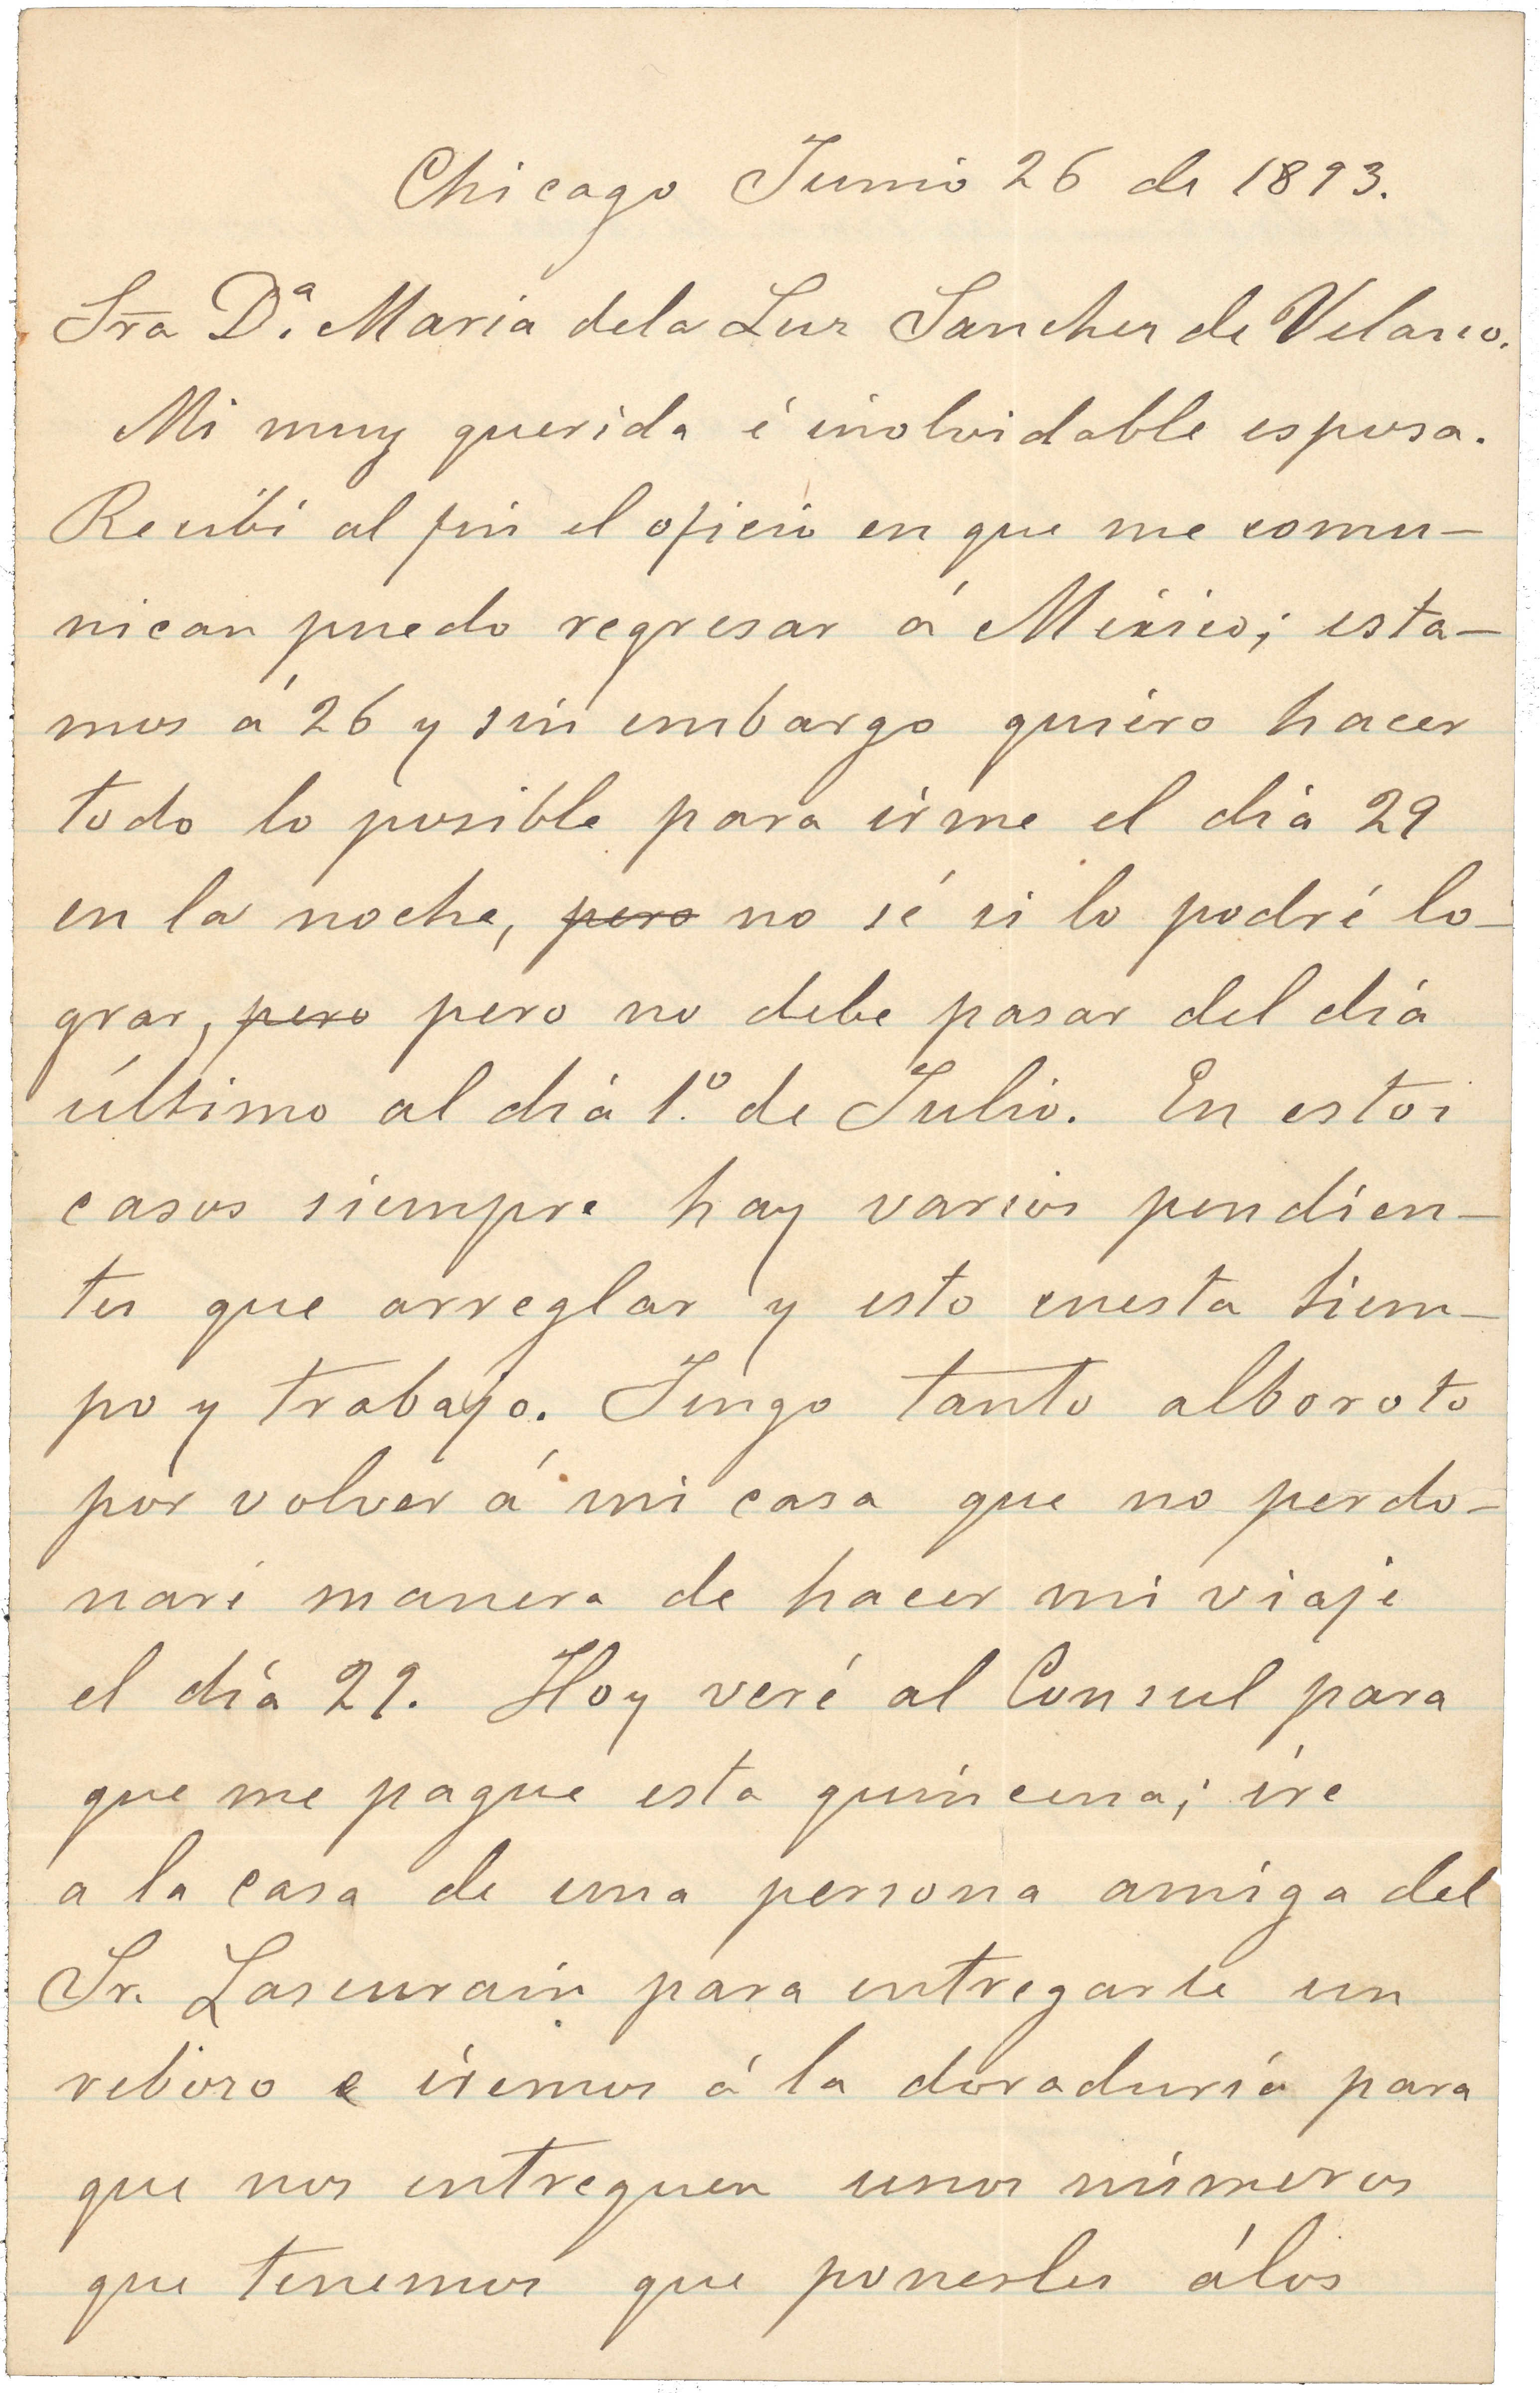 Chicago Junio 26 de 1893.
Sra Dª. Maria dela Luz Sanchez de Velasco.
Mi muy querida é inolvidable esposa.
Recibí al fin el oficio en que me comu-
nican puedo regresar á México; esta-
mos á 26 y sin embargo quiero hacer
todo lo posible para irme el día 29
en la noche, ~~pero~~ no sé si lo podré lo-
grar, ~~pero~~ pero no debe pasar del día
último al día 1.º de Julio. En estos
casos siempre hay varios pendien-
tes que arreglar y esto cuesta tiem-
po y trabajo. Tengo tanto alboroto
por volver á mi casa que no perdo-
naré manera de hacer mi viaje
el día 29. Hoy veré al Consul para
que me pague esta quincena; ire
a la casa de una persona amiga del
Sr. Lascurain para entregarle un
rebozo e iremos á la doraduría para
que nos entreguen unos números
que tenemos que ponerles álos